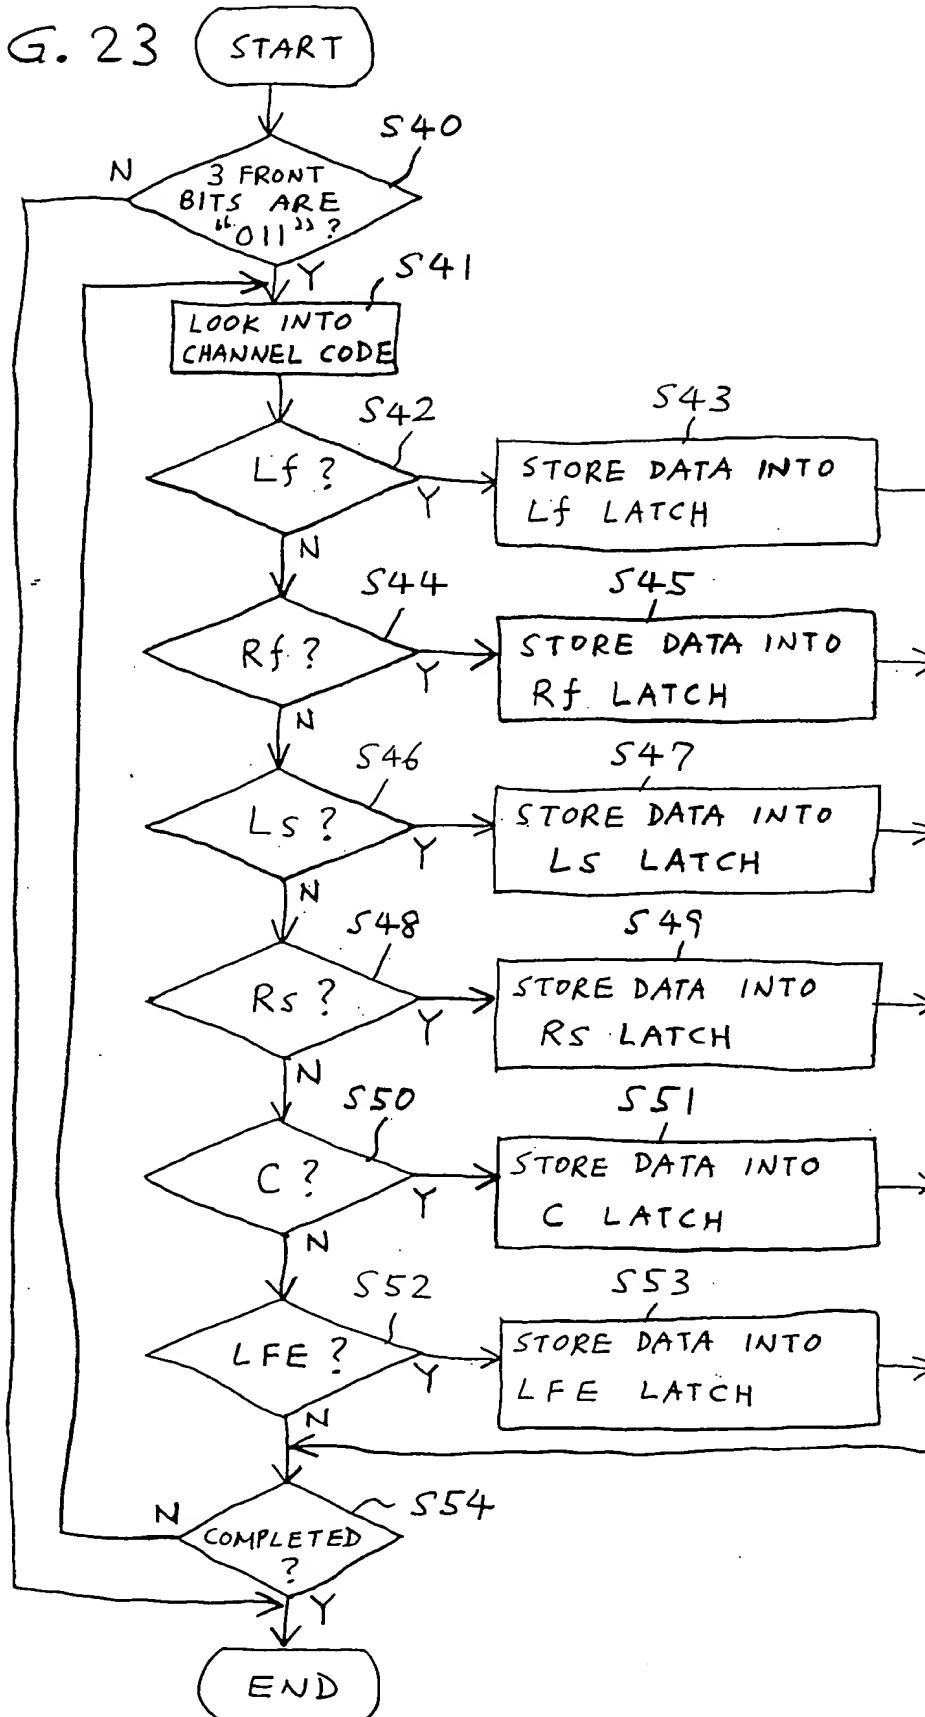 G. 23
START
S40
N
3 FRONT
BITS ARE
"011" ?
Y
S41
LOOK INTO
CHANNEL CODE
S42
S43
Lf ?
Y
STORE DATA INTO
Lf LATCH
N
S44
S45
Rf ?
Y
STORE DATA INTO
Rf LATCH
N
S46
S47
Ls ?
Y
STORE DATA INTO
LS LATCH
N
S48
S49
Rs ?
Y
STORE DATA INTO
RS LATCH
N
S50
S51
C ?
Y
STORE DATA INTO
C LATCH
N
S52
S53
LFE ?
Y
STORE DATA INTO
LFE LATCH
N
S54
N
COMPLETED
?
Y
END